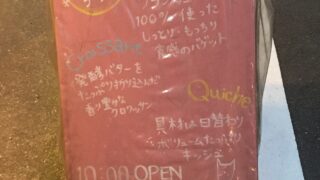 100%使った
しっとり・もっちり
食感のバゲット
Croissant
発酵バターを
たっぷり折り込んだ
香り豊かな
クロワッサン
Quiche
具材は日替わり
ボリュームたっぷり
キッシュ
10:00 OPEN